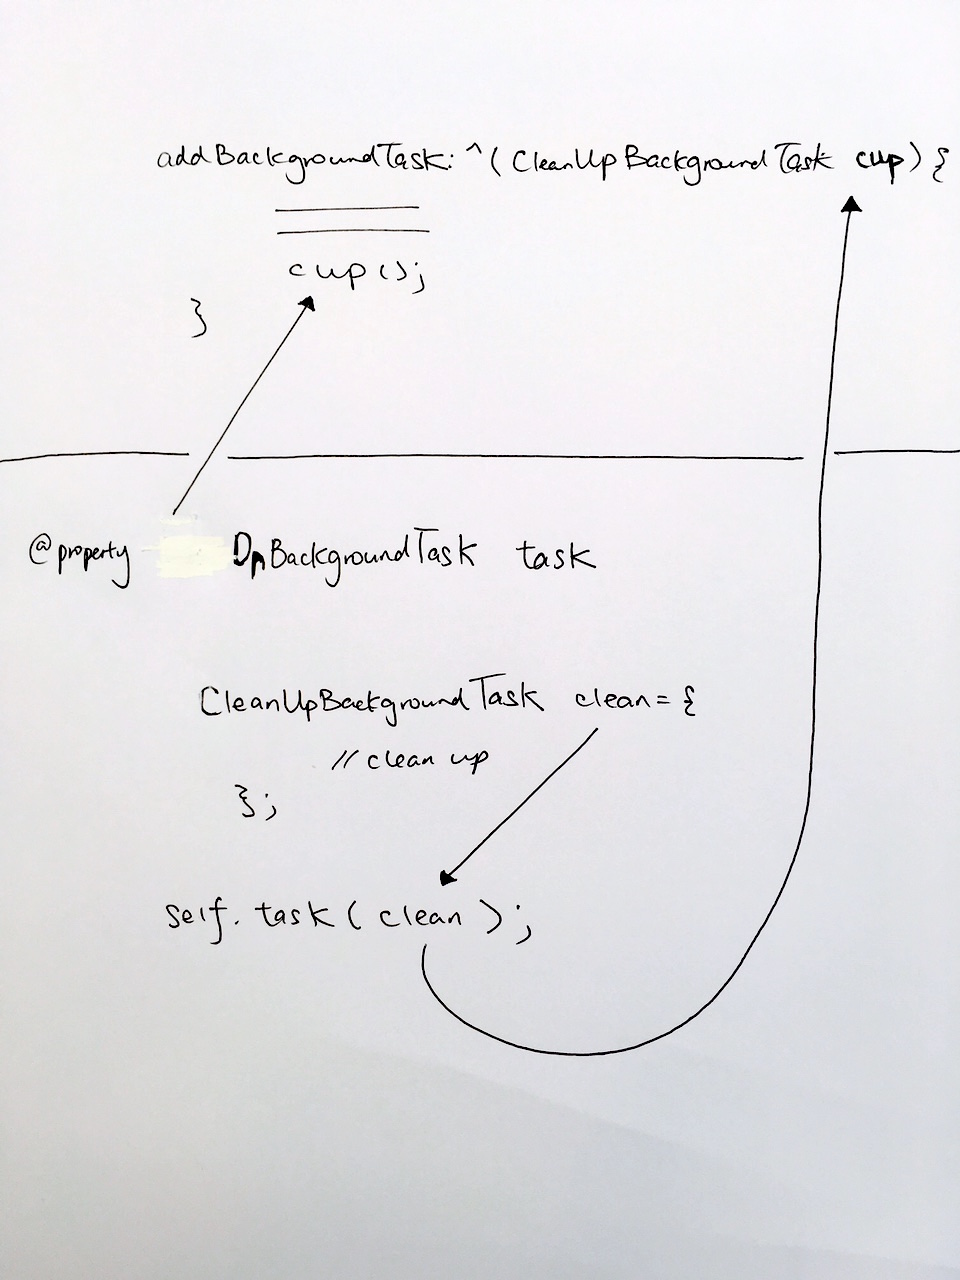 addBackgroundTask: ^(CleanUpBackgroundTask cup) {
cup();
}
@property DnBackgroundTask task
CleanUpBackgroundTask clean = {
// clean up
};
self.task(clean);